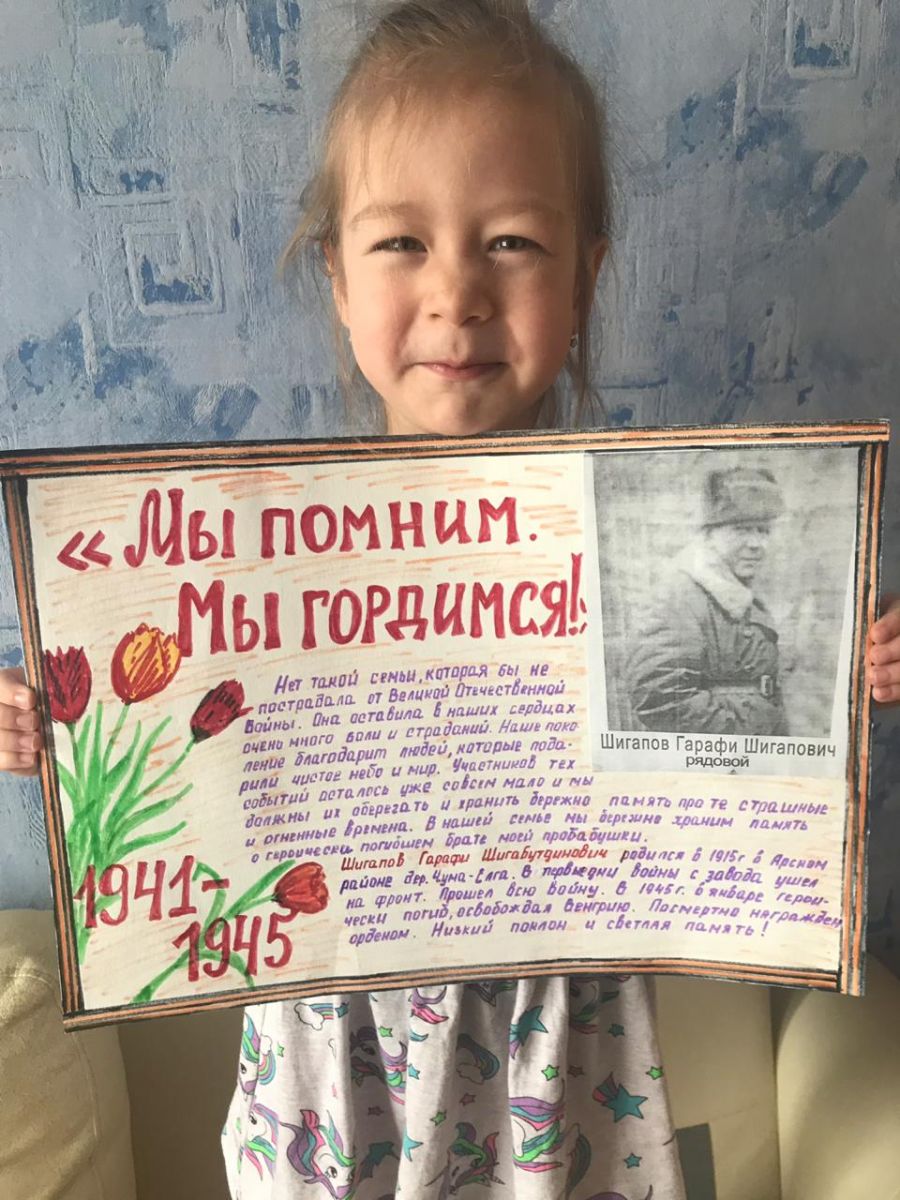 «Мы помним.
Мы гордимся!»
Шигапов Гарафи Шигапович
рядовой
Нет такой семьи, которая бы не
пострадала от Великой Отечественной
Войны. Она оставила в наших сердцах
очень много боли и страданий. Наше поко-
ление благодарит людей, которые пода-
рили чистое небо и мир. Участников тех
событий осталось уже совсем мало и мы
должны их оберегать и хранить бережно память про те страшные
и огненные времена. В нашей семье мы бережно храним память
о героически погибшем брате моей прабабушки.
Шигапов Гарафи Шигабутдинович родился в 1915г в Арском
районе дер. Чума-Елга. В первые дни войны с завода ушел
на фронт. Прошел всю войну. В 1945г. в январе герои-
чески погиб, освобождая Венгрию. Посмертно награжден
орденом. Низкий поклон и светлая память!
1941-
1945